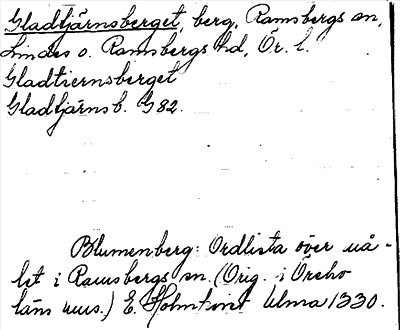 Gladtjärnsberget, berg, Ramsbergs sn,
Lindes o. Ramsbergs hd, Ör. l.
Gladtiernsberget
Gladtjärnsb. G82.
Blumenberg: Ordlista över må-
let i Ramsbergs sn. (Orig. i Örebro
läns mus.) E. Holmkvist Ulma 1330.